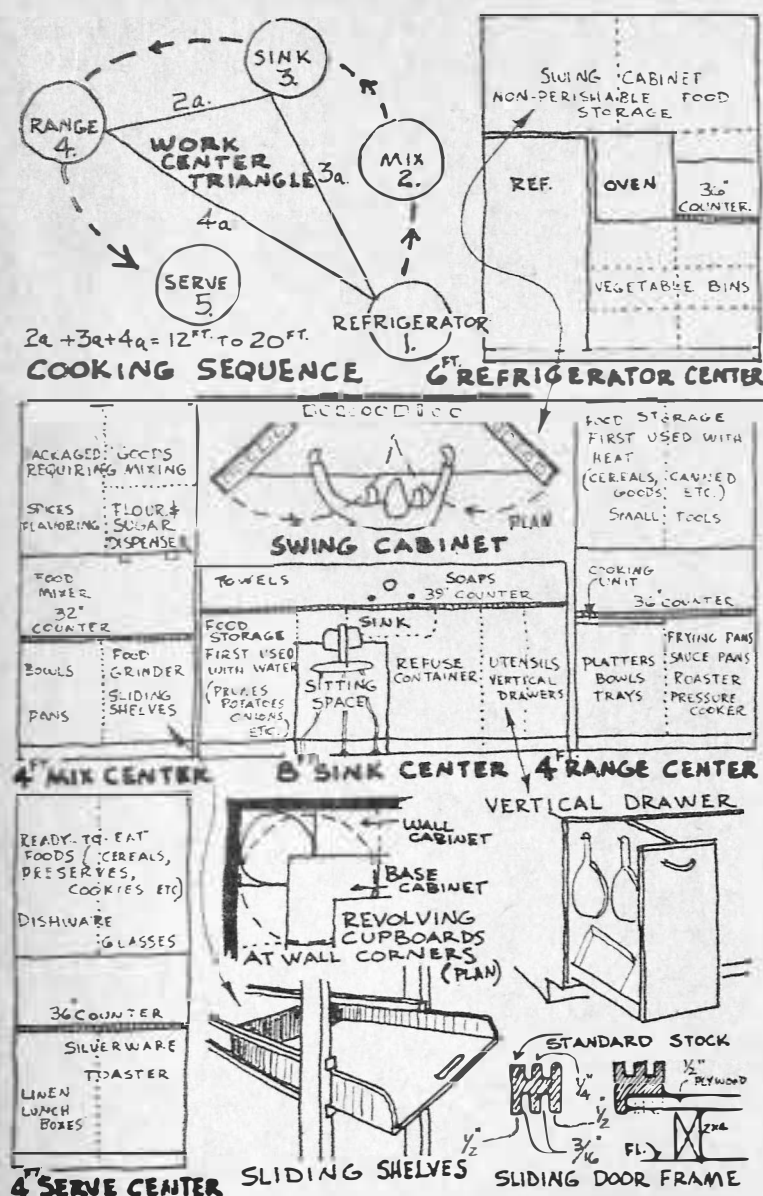 SINK
3.
2a.
RANGE
4.
WORK
CENTER
TRIANGLE
3a.
4a
MIX
2.
SERVE
5.
REFRIGERATOR
1.
2a + 3a + 4a = 12 FT. TO 20 FT.
COOKING SEQUENCE
SWING CABINET
NON-PERISHABLE FOOD
STORAGE
REF.
OVEN
36"
COUNTER.
VEGETABLE BINS
6 FT. REFRIGERATOR CENTER
ACKAGED GOODS
REQUIRING MIXING
SPICES
FLAVORING
FLOUR &
SUGAR
DISPENSE
FOOD
MIXER
32"
COUNTER
BOWLS
PANS
FOOD
GRINDER
SLIDING
SHELVES
4 FT. MIX CENTER
PLAN
SWING CABINET
TOWELS
SOAPS
39" COUNTER
FOOD
STORAGE
FIRST USED
WITH WATER
(PRUNES
POTATOES
ONIONS
ETC.)
SINK
SITTING
SPACE
REFUSE
CONTAINER
UTENSILS
VERTICAL
DRAWERS
8 FT. SINK CENTER
FOOD STORAGE
FIRST USED WITH
HEAT
(CEREALS, CANNED
GOODS ETC.)
SMALL TOOLS
COOKING
UNIT
36" COUNTER
PLATTERS
BOWLS
TRAYS
FRYING PANS
SAUCE PANS
ROASTER
PRESSURE
COOKER
4 FT RANGE CENTER
READY-TO-EAT
FOODS (CEREALS,
PRESERVES,
COOKIES ETC)
DISHWARE
GLASSES
36" COUNTER
SILVERWARE
TOASTER
LINEN
LUNCH
BOXES
4 FT. SERVE CENTER
WALL
CABINET
BASE
CABINET
REVOLVING
CUPBOARDS
AT WALL CORNERS
(PLAN)
SLIDING SHELVES
VERTICAL DRAWER
STANDARD STOCK
1/4"
1/2"
1/2"
3/16"
1/2"
PLYWOOD
2x4
FL.
SLIDING DOOR FRAME